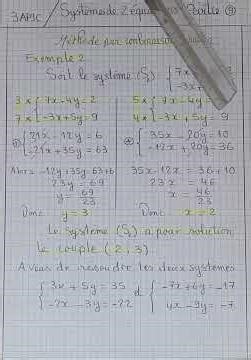 3APIC / Systèmes de 2 équations Partie 4
Méthode par combinaison
Exemple 2
Soit le système (S₂) { 7x
-3x+
3× { 7x-4y=2 5× { 7x-4y=
7× { -3x+5y=9 4× { -3x+5y=9
{ 21x-12y=6 { 35x-20y=10
{ -21x+35y=63 { -12x+20y=36
Alors -12y+35y=63+6 35x-12x=36+10
23y=69 23x=46
y=69/23 x=46/23
Donc y=3 Donc x=2
Le système (S) a pour solution
le couple (2,3)
A vous de résoudre les deux systèmes
{ 3x+5y=35 et { -7x+6y=-17
{ -2x-3y=-22 { 4x-9y=-7